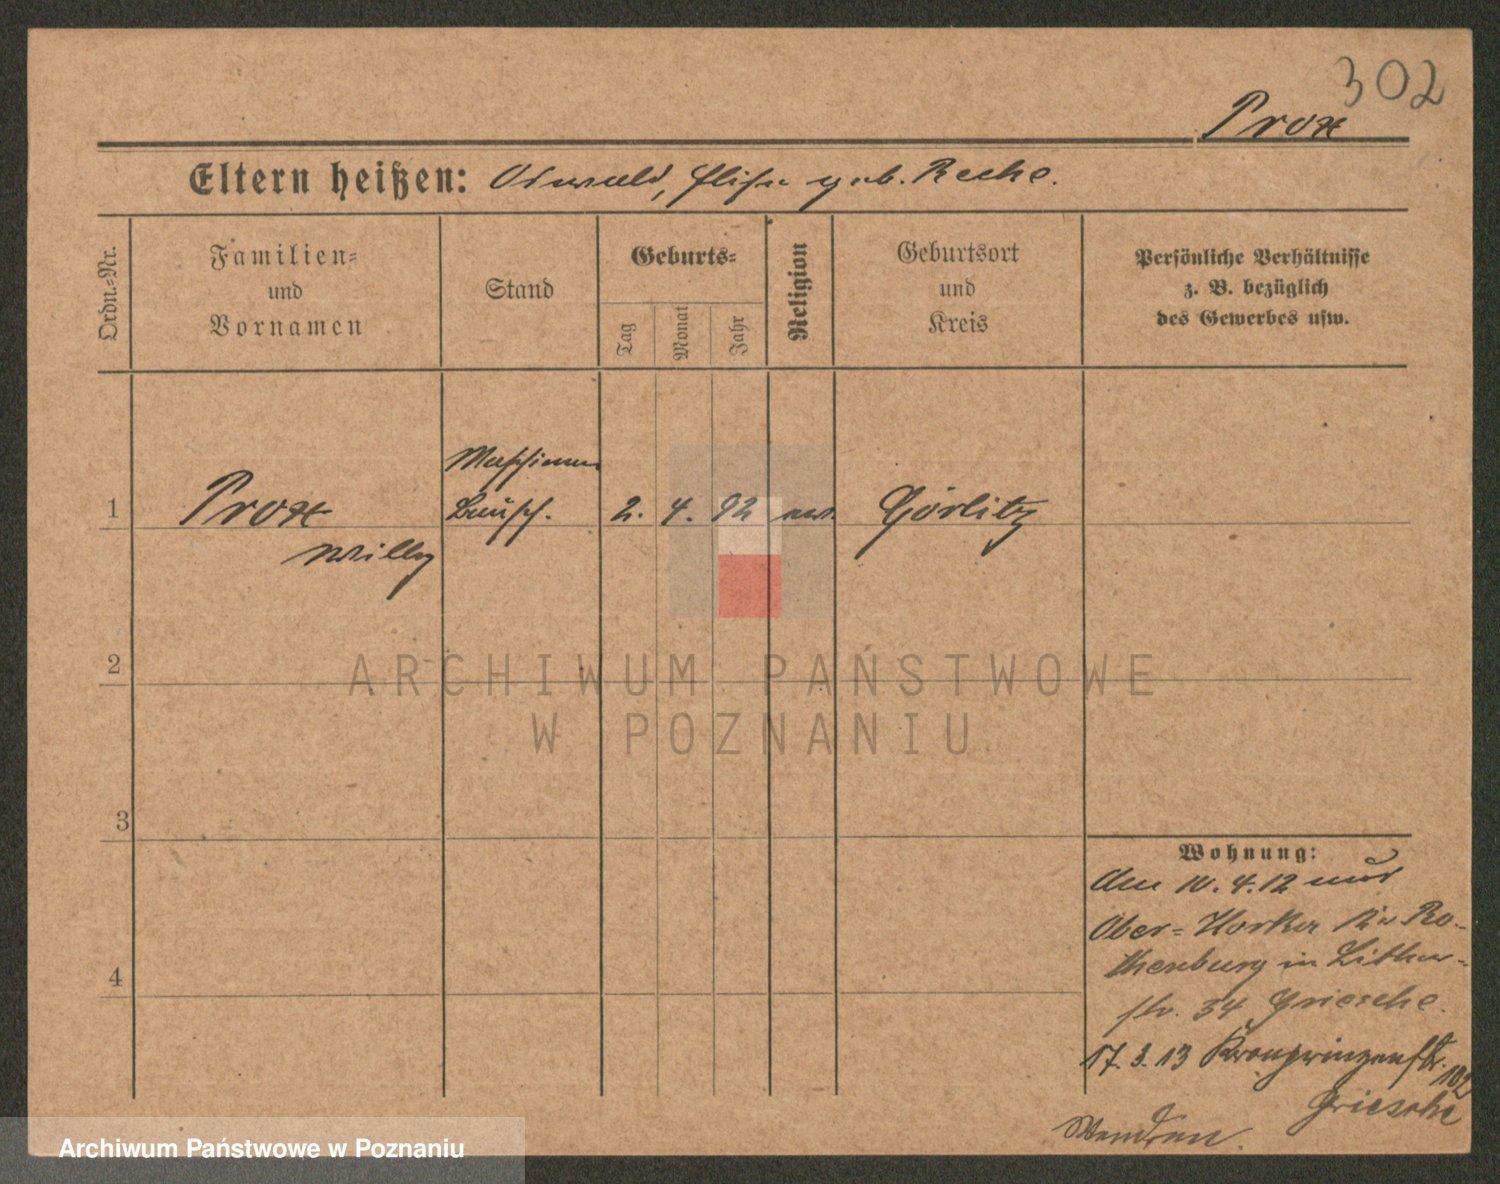 302
Prox
Eltern heißen: Oswald, Elise geb. Reche.
Ordn.-Nr.
Familien-
und
Vornamen
Stand
Geburts-
Tag
Monat
Jahr
Religion
Geburtsort
und
Kreis
Persönliche Verhältnisse
z. B. bezüglich
des Gewerbes usw.
Maschinen
1 Prox bausch. 2. 4. 92 ev. Görlitz
Willy
2
ARCHIWUM PAŃSTWOWE
W POZNANIU
3
4
Wohnung:
Am 10.4.12 aus
Ober-Horka Kr. Ro-
thenburg in Luther-
str. 34 Griesche.
17.3.13 Kronprinzenstr. 102
Griesche
Archiwum Państwowe w Poznaniu